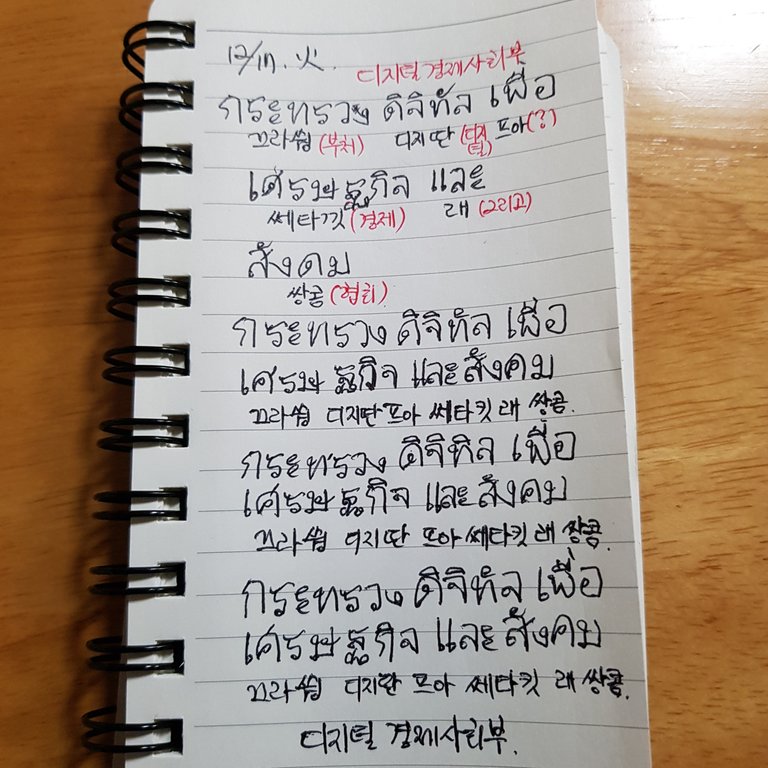 12/17. 火. 디지털경제사회부
กระทรวง ดิจิทัล เพื่อ
끄라쑹 (부처) 디지딴 (디지털) 프아 (?)
เศรษฐกิจ และ
쎄타낏 (경제) 래 (그리고)
สังคม
쌍콤 (협회)
กระทรวง ดิจิทัล เพื่อ
เศรษฐกิจ และสังคม
끄라쑹 디지딴 프아 쎄타킷 래 쌍콤.
กระทรวง ดิจิทิล เพื่อ
เศรษฐกิจ และสังคม
끄라쑹 디지딴 프아 쎄타킷 래 쌍콤.
กระทรวง ดิจิทัล เพื่อ
เศรษฐกิจ และสังคม
끄라쑹 디지딴 프아 쎄타킷 래 쌍콤.
디지털 경제사회부.